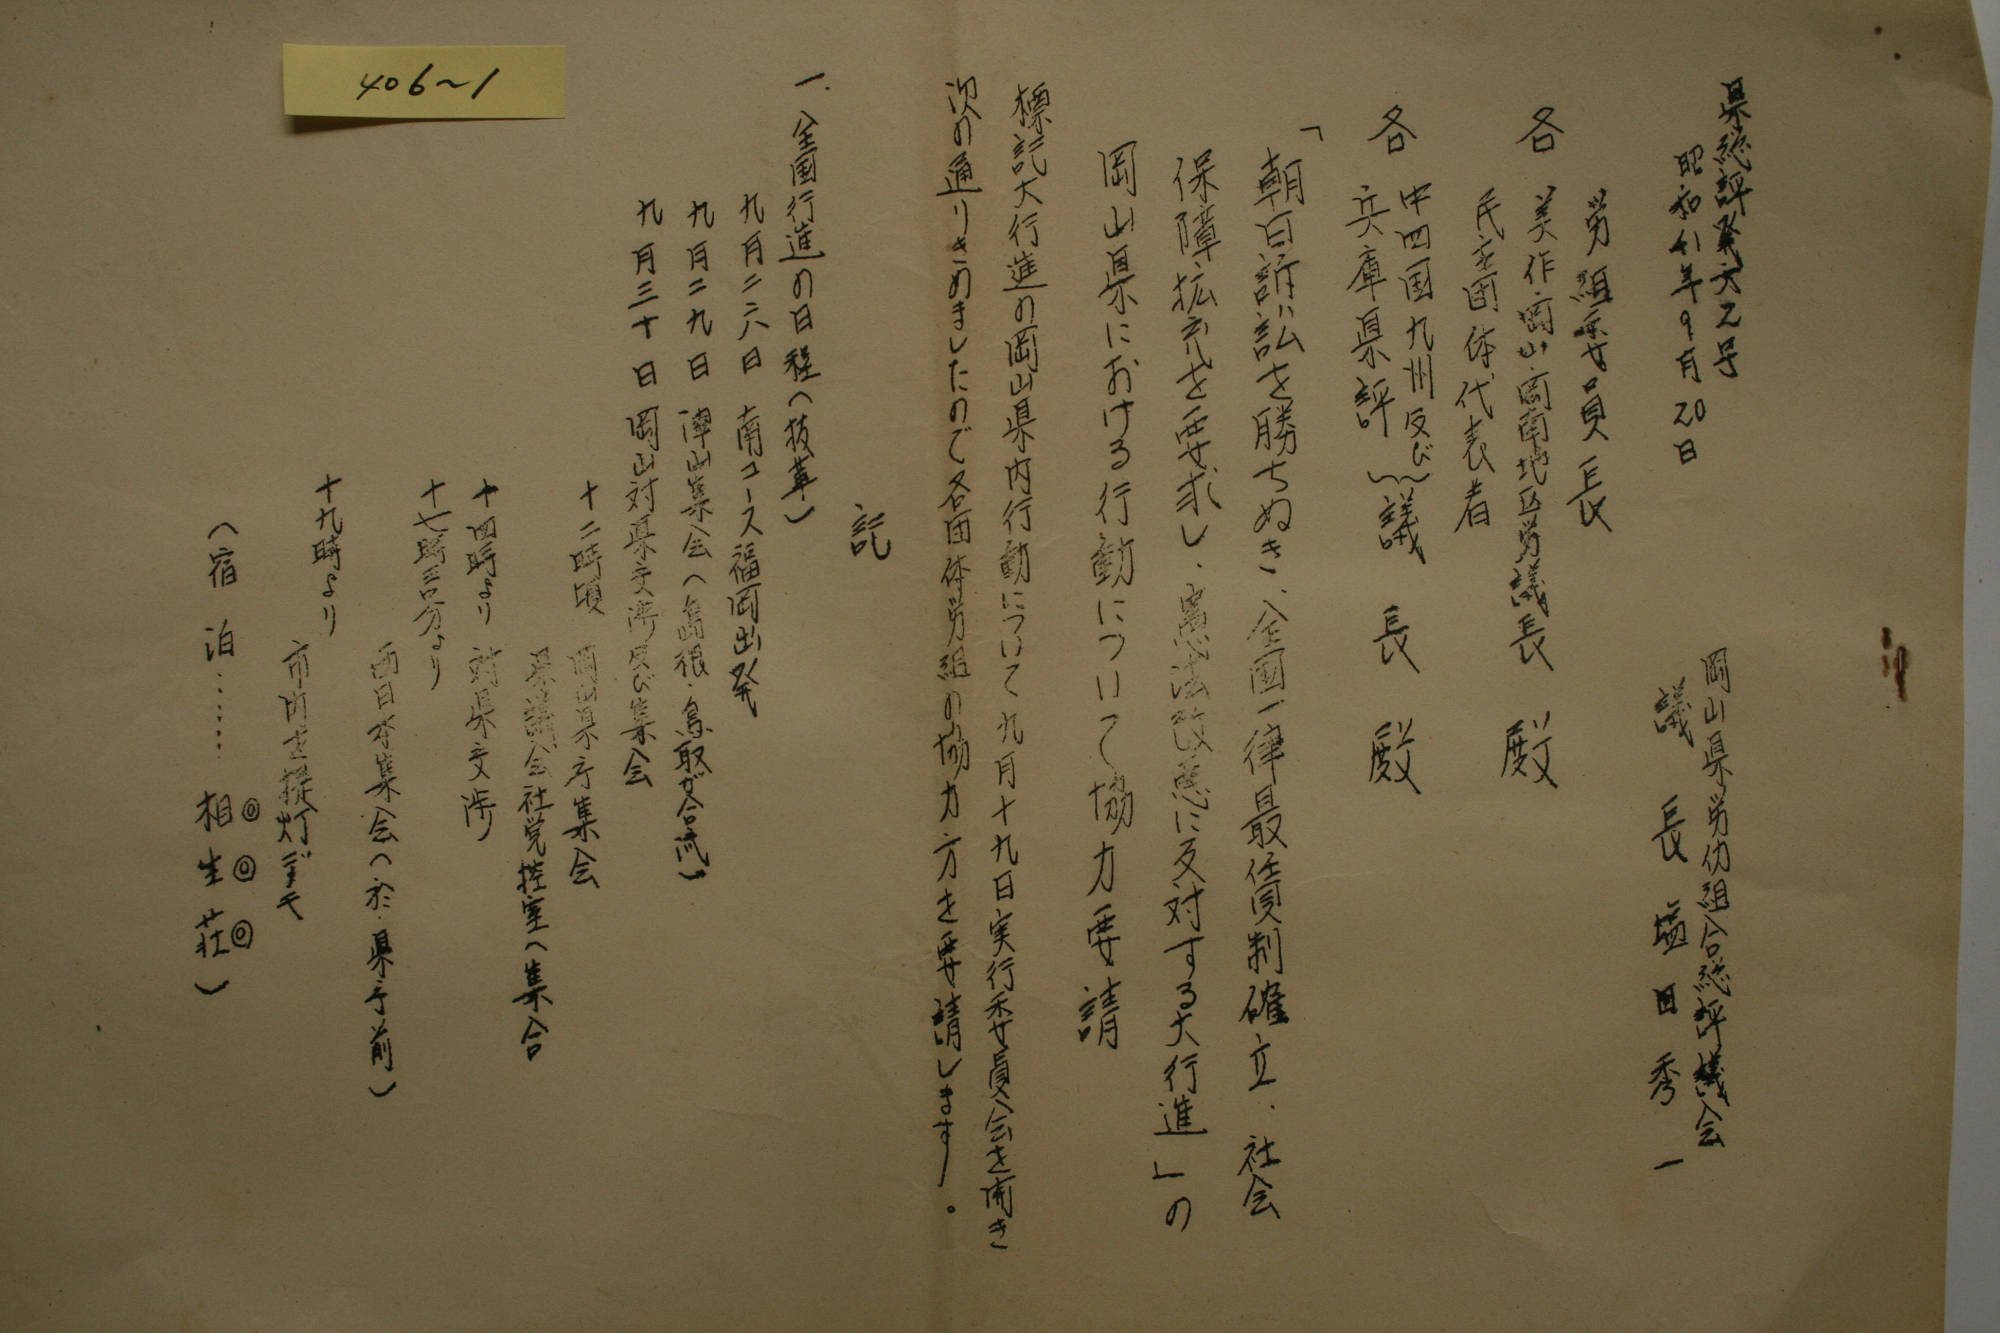 県総評発六2号
昭和41年9月20日
岡山県労仂組合総評議会
議長 塩田秀一
労組委員長
各 美作・岡山・岡南地区労議長 殿
民主団体代表者
中四国九州及び
各 兵庫県評 議長 殿
「朝日訴訟を勝ちぬき、全国一律最低賃制確立、社会
保障拡充を要求し、憲法改悪に反対する大行進」の
岡山県における行動について協力要請
標記大行進の岡山県内行動について九月十九日実行委員会を開き
次の通りきめましたので各団体労組の協力方を要請します。
記
一、全国行進の日程(抜萃)
九月二六日 南コース福岡出発
九月二九日 津山集会(島根・鳥取が合流)
九月三十日 岡山対県交渉及び集会
十二時頃 岡山県庁集会
県議会社党控室へ集合
十四時より 対県交渉
十七時三〇分より
西日本集会(於・県庁前)
十九時より
市内を提灯デモ
(宿泊……相生荘)
406~1